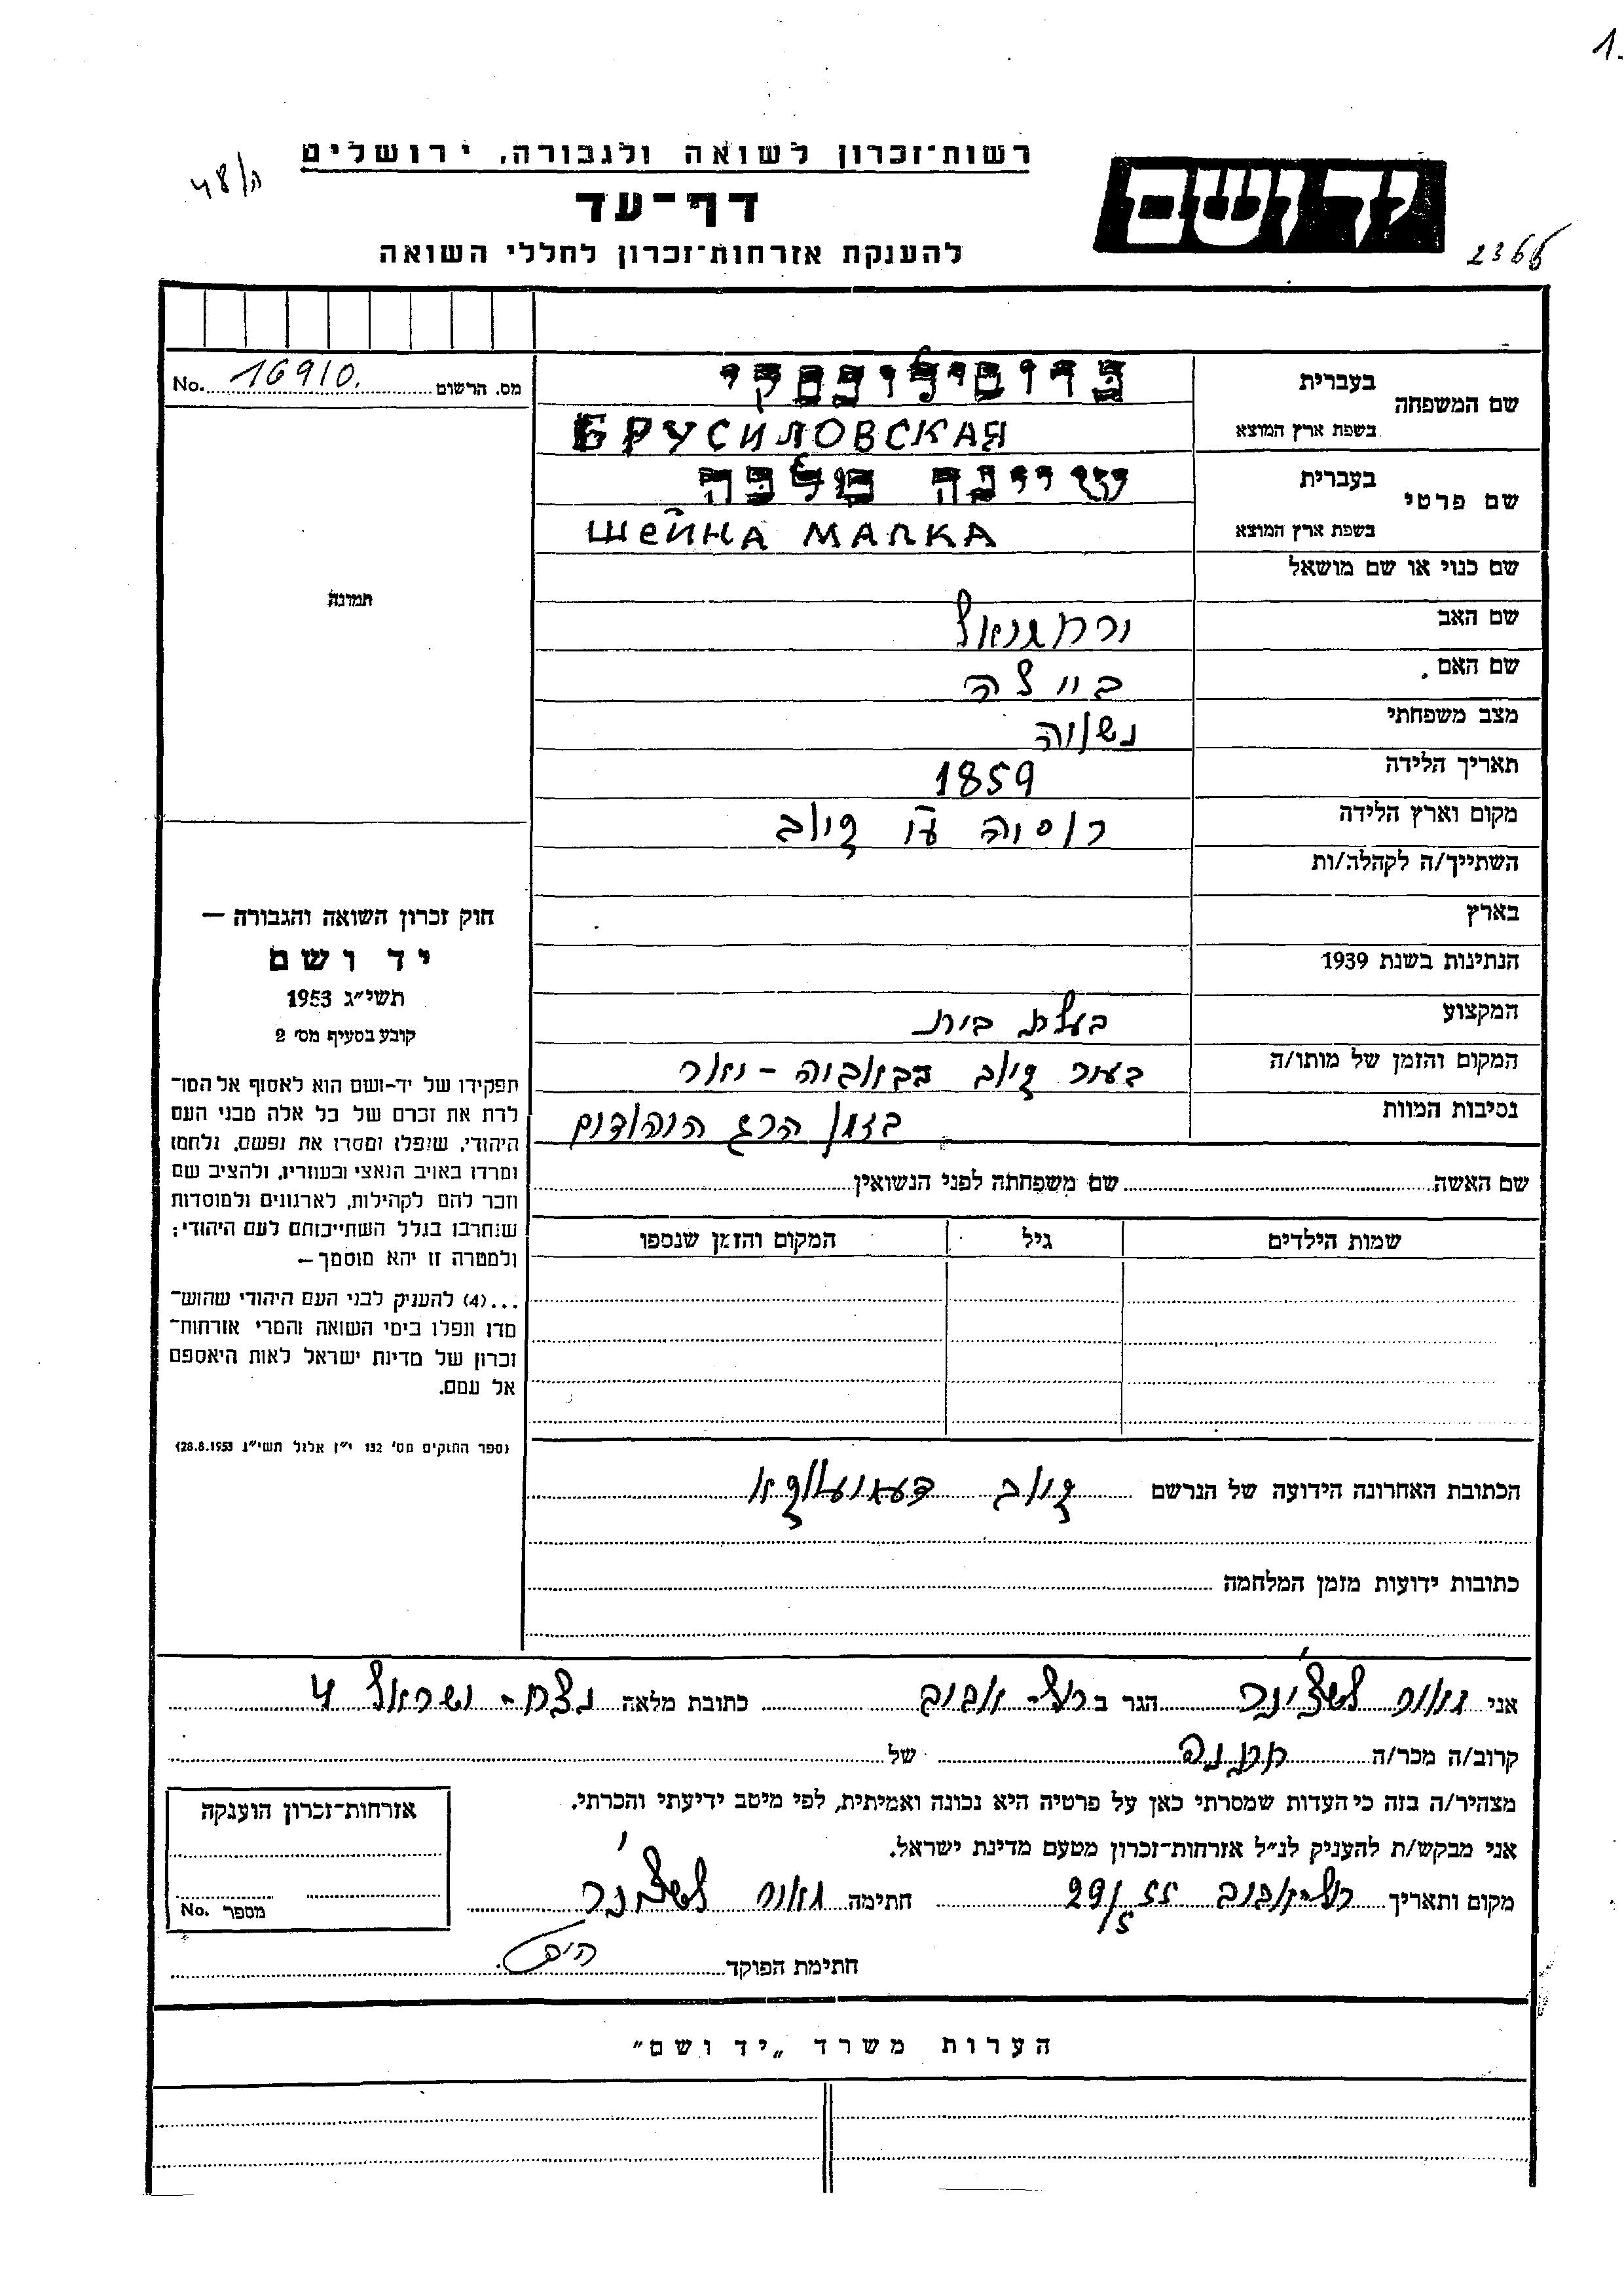 1.
רשות־זכרון לשואה ולגבורה, ירושלים
דף־עד
להענקת אזרחות־זכרון לחללי השואה
יד ושם
2366
מס. הרשום 16910. No.
שם המשפחה
בעברית ברוסילובסקי
בשפת ארץ המוצא БРУСИЛОВСКАЯ
שם פרטי
בעברית שיינה מלכה
בשפת ארץ המוצא ШЕЙНА МАЛКА
שם כנוי או שם מושאל
תמונה
שם האב ירחמיאל
שם האם ביילה
מצב משפחתי נשואה
תאריך הלידה 1859
מקום וארץ הלידה רוסיה עיר קיוב
השתייך/ה לקהלה/ות
בארץ
הנתינות בשנת 1939
המקצוע בעלת בית
המקום והזמן של מותו/ה בעיר קיוב
נסיבות המוות בזמן הרג היהודים
שם האשה שם משפחתה לפני הנשואין
שמות הילדים גיל המקום והזמן שנספו
חוק זכרון השואה והגבורה —
יד ושם
תשי״ג 1953
קובע בסעיף מס׳ 2
תפקידו של יד-ושם הוא לאסוף אל המו־
לדת את זכרם של כל אלה מבני העם
היהודי, שנפלו ומסרו את נפשם, נלחמו
ומרדו באויב הנאצי ובעוזריו, ולהציב שם
וזכר להם לקהילות, לארגונים ולמוסדות
שנחרבו בגלל השתייכותם לעם היהודי;
ולמטרה זו יהא מוסמך —
...(4) להעניק לבני העם היהודי שהוש־
מדו ונפלו בימי השואה והמרי אזרחות־
זכרון של מדינת ישראל לאות היאספם
אל עמם.
(ספר החוקים מס׳ 132 י״ז אלול תשי״ג 28.8.1953)
הכתובת האחרונה הידועה של הנרשם קיוב
כתובות ידועות מזמן המלחמה
אני הגר ב תל-אביב כתובת מלאה נצח-ישראל 4
קרוב/ה מכר/ה של
מצהיר/ה בזה כי העדות שמסרתי כאן על פרטיה היא נכונה ואמיתית, לפי מיטב ידיעתי והכרתי.
אני מבקש/ת להעניק לנ״ל אזרחות־זכרון מטעם מדינת ישראל.
מקום ותאריך תל-אביב 29/5 55 חתימה
חתימת הפוקד
אזרחות־זכרון הוענקה
מספר No.
הערות משרד „יד ושם״